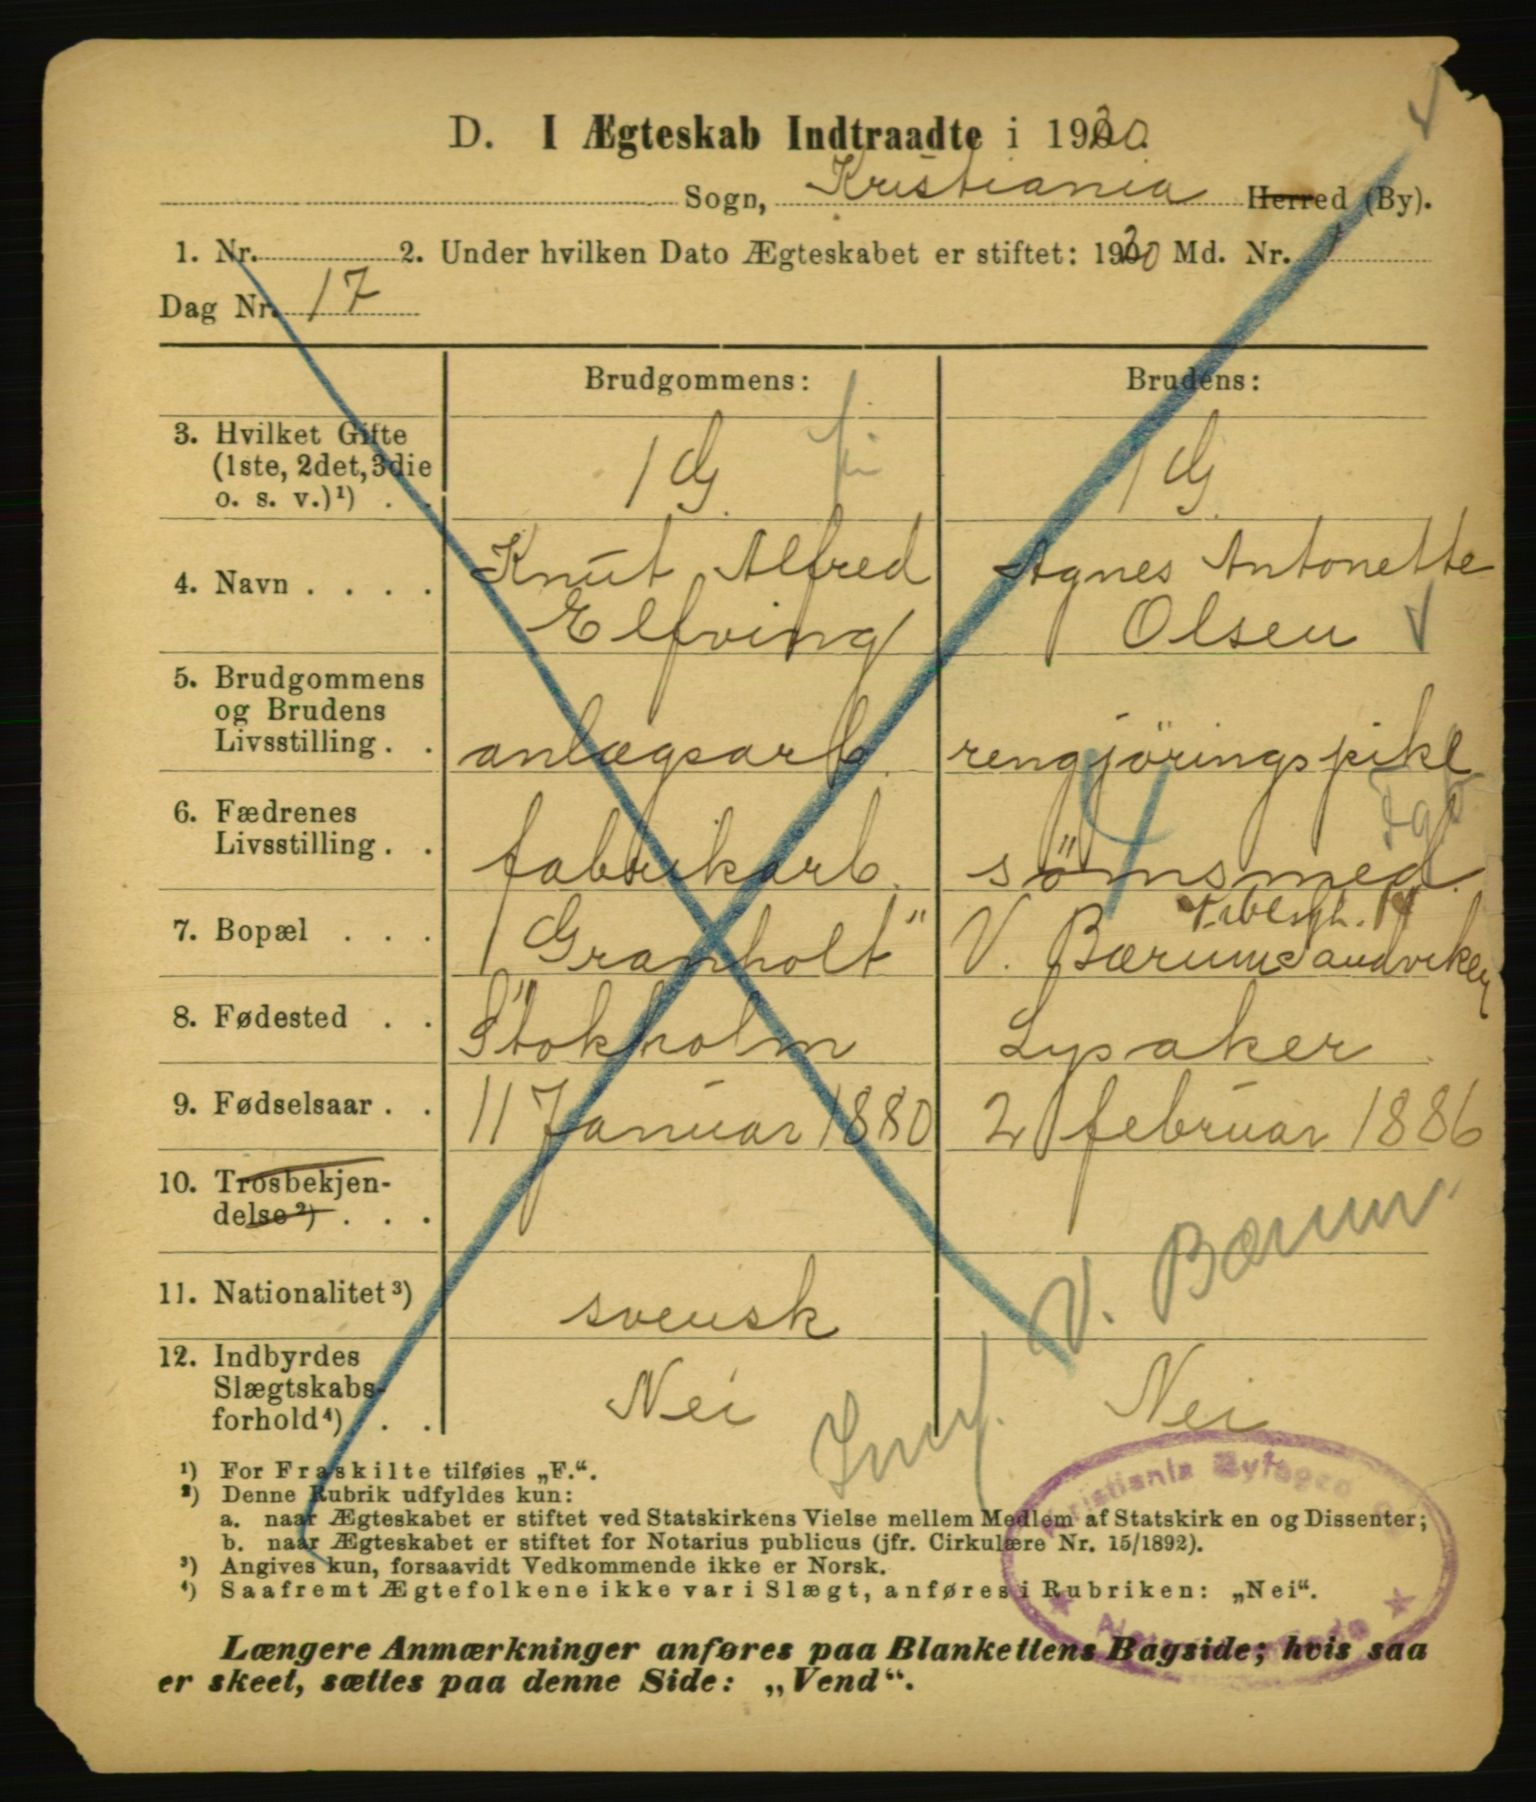 D. I Ægteskab Indtraadte i 1920.
Sogn, Kristiania Herred (By).
1. Nr. 2. Under hvilken Dato Ægteskabet er stiftet: 1920 Md. Nr. 1
Dag Nr. 17
Brudgommens: Brudens:
3. Hvilket Gifte
(1ste, 2det, 3die
o. s. v.)¹) . .
1 G. 1 G.
4. Navn . . . .
Knut Alfred Agnes Antonette
Elfving Olsen
5. Brudgommens
og Brudens
Livsstilling . .
anlægsarb. rengjöringspike
6. Fædrenes
Livsstilling . .
fabrikarb. sömsmed.
7. Bopæl . . .
"Granholt" V. Bærum Sandviken
8. Fødested . .
Stokholm Lysaker
9. Fødselsaar . .
11 Januar 1880 2 februar 1886
10. Trosbekjen-
delse²) . . .
V. Bærum
11. Nationalitet³)
svensk
12. Indbyrdes
Slægtskabs-
forhold⁴) . .
Nei Nei
¹) For Fraskilte tilføies „F.“.
²) Denne Rubrik udfyldes kun:
a. naar Ægteskabet er stiftet ved Statskirkens Vielse mellem Medlem af Statskirk en og Dissenter;
b. naar Ægteskabet er stiftet for Notarius publicus (jfr. Cirkulære Nr. 15/1892).
³) Angives kun, forsaavidt Vedkommende ikke er Norsk.
⁴) Saafremt Ægtefolkene ikke var i Slægt, anføres i Rubriken: „Nei“.
Kristiania Byfogeo
Længere Anmærkninger anføres paa Blankettens Bagside; hvis saa
er skeet, sættes paa denne Side: „Vend“.